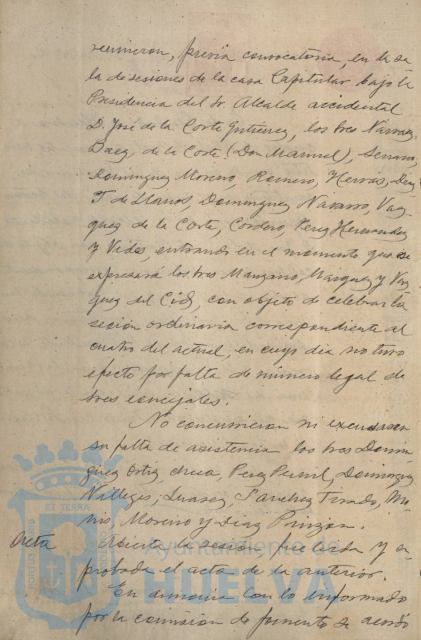 reunieron, previa convocatoria, en la sa
la de sesiones de la casa Capitular bajo la
Presidencia del Sr. Alcalde accidental
D. José de la Corte Gutierrez, los Sres Narvaez
Baez, de la Corte (Don Manuel), Serrano,
Dominguez Moreno, Romero, Hervás, Diaz
T. de Llanos, Dominguez Navarro, Vaz
quez de la Corte, Cordero, Perez Hernandez
y Vides, entrando en el momento que se
expresará los Sres Manzano, Marquez y Vaz
quez del Cid, con objeto de celebrar la
sesion ordinaria correspondiente al
cuatro del actual, en cuyo dia no tuvo
efecto por falta de número legal de
Sres concejales.
No concurrieron ni excusaron
su falta de asistencia los Sres Domin
guez Ortiz, Perez Dominguez
Vallejo, Suarez, Sanchez Mo
Moreno y Diaz Pinzon.
Acta Abierta la sesion, fue leida y a
probada el acta de la anterior.
En armonia con lo informado
por la comision de fomento se acordó
Ayuntamiento de
HUELVA